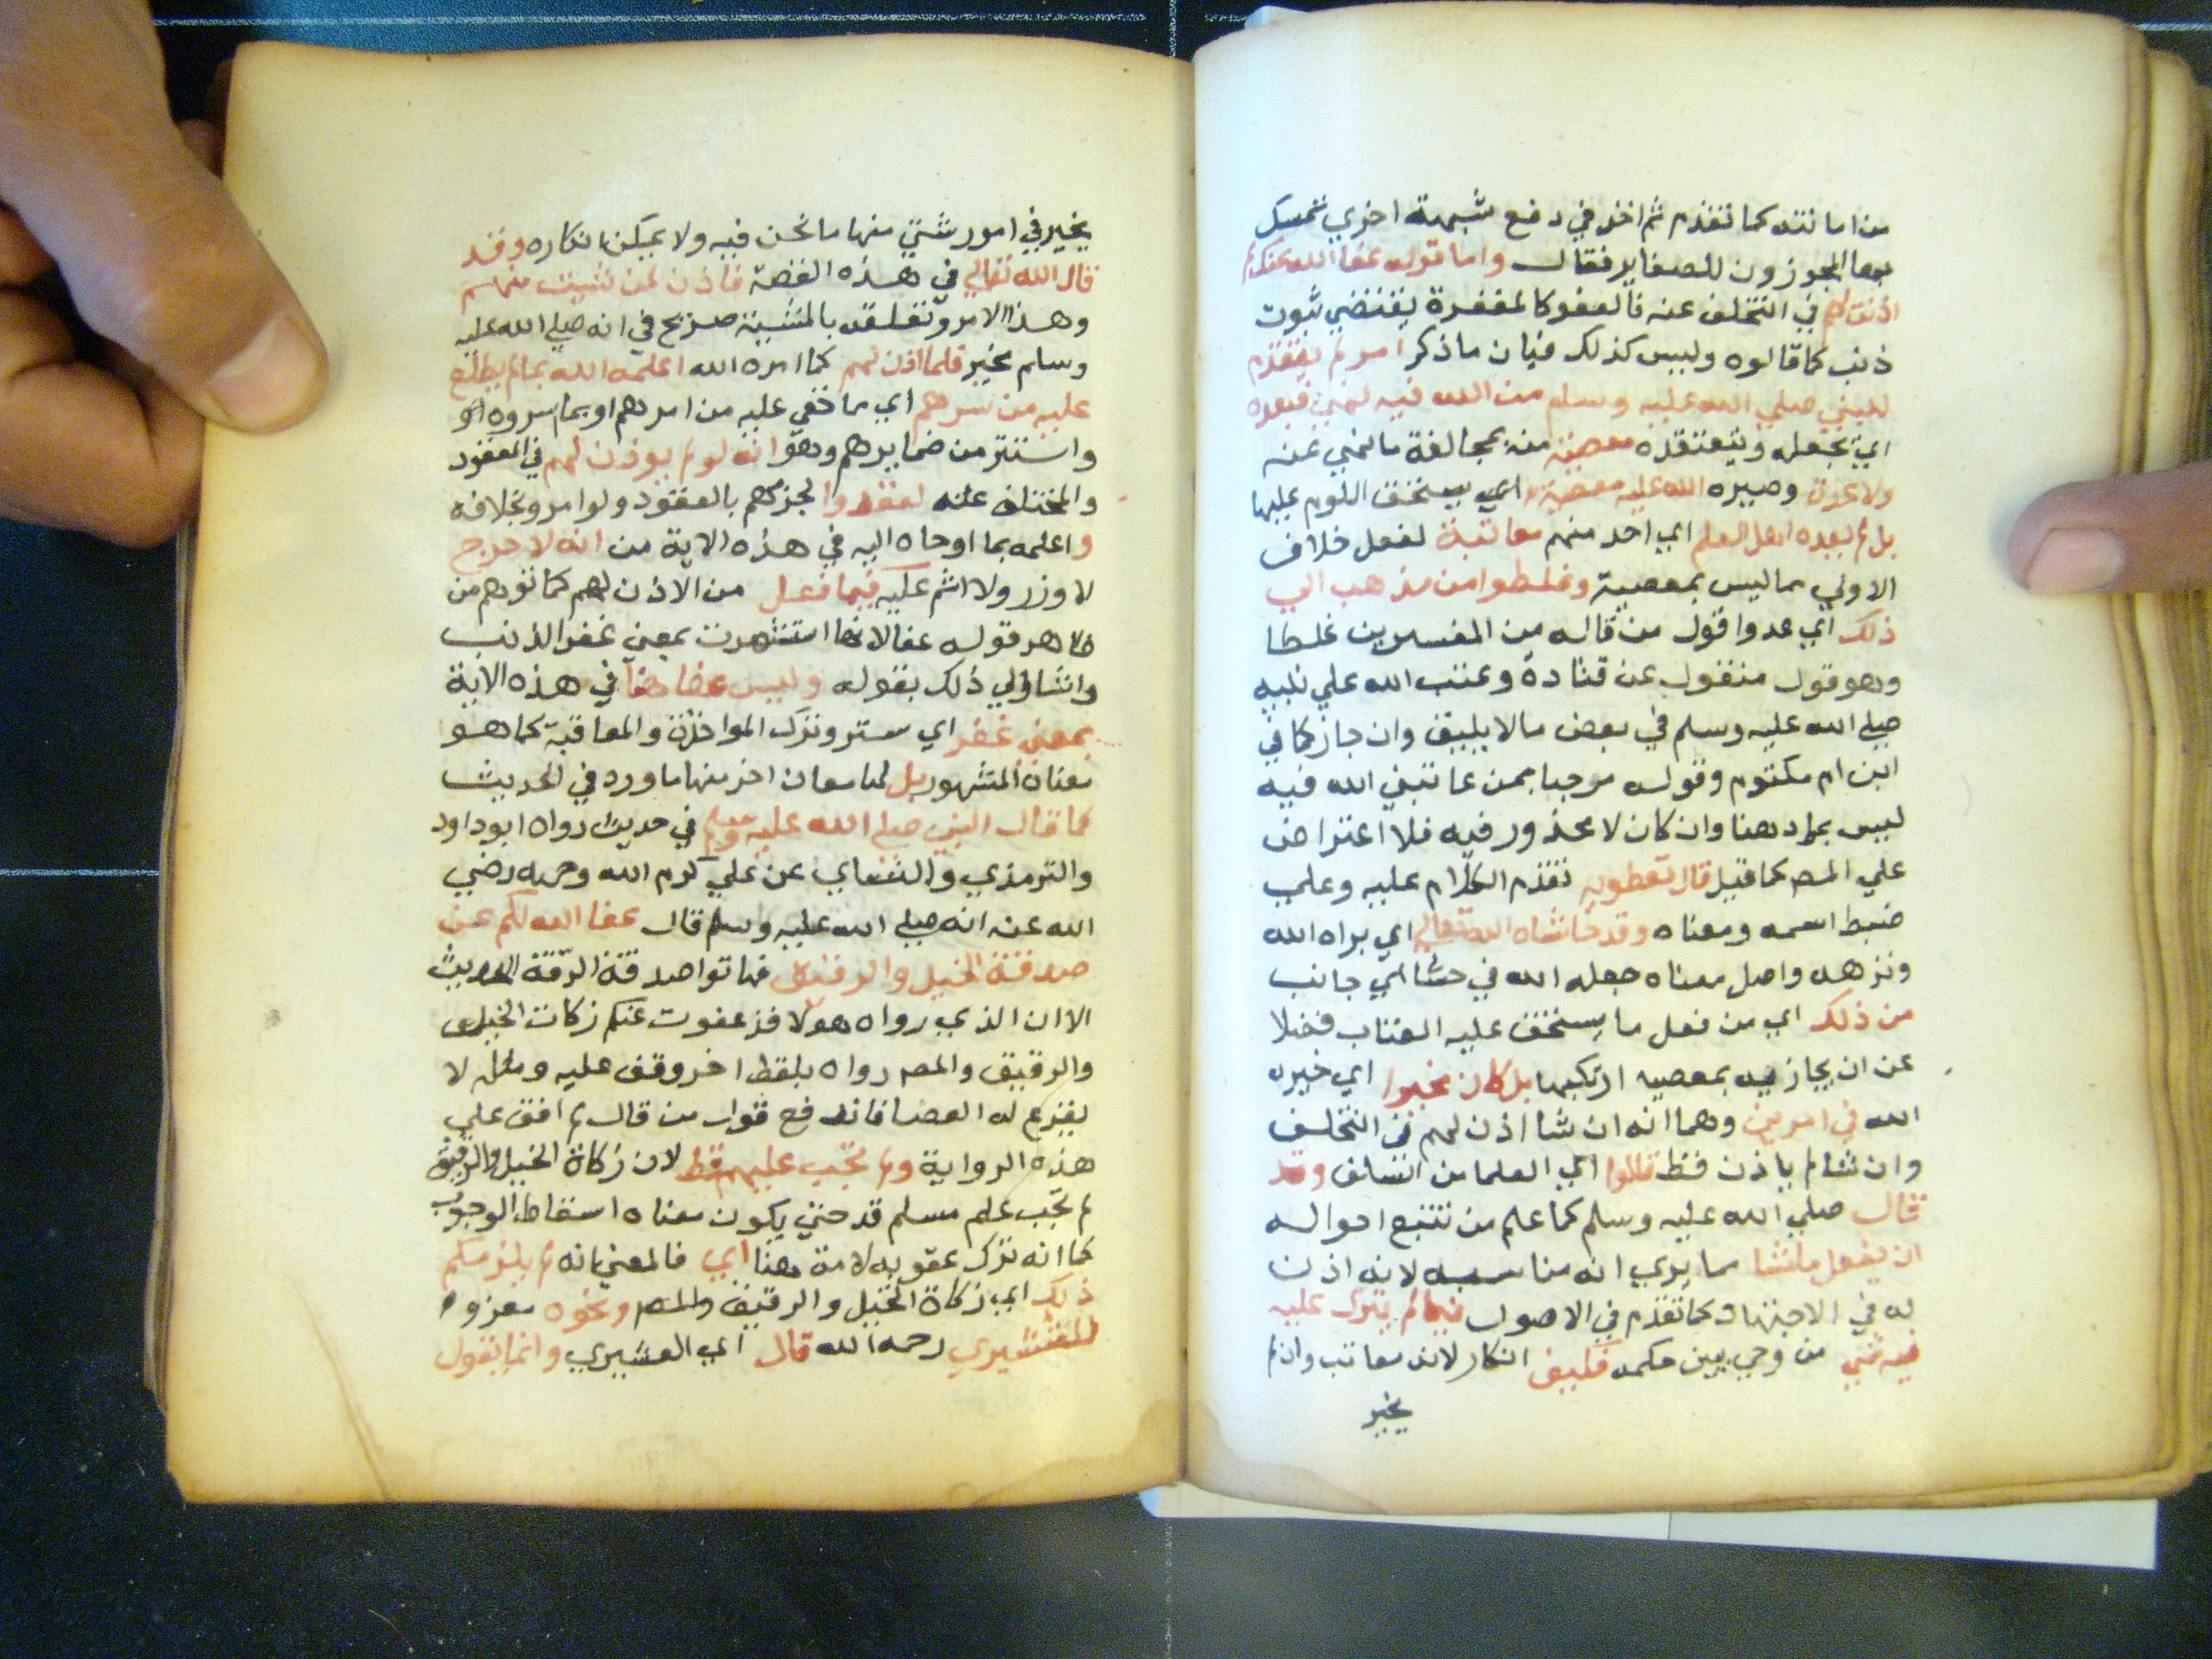 من امانته كما تقدم ثم اخذ في دفع شبهة اخري تمسك
بها المجوزون للصغاير فقال واما قوله عفا الله عنك لم
اذنت لهم في التخلف عنه فالعفو كالمغفرة يقتضي ثبوت
ذنب كما قالوه وليس كذلك فبان ما ذكر امر لم يتقدم
للنبي صلي الله عليه وسلم من الله فيه نهي فيعده
اي يجعله ويعتقده معصية منه بمخالفة ما نهي عنه
ولا عده وصيره الله عليه معصية اي يستحق اللوم عليها
بل لم يعده اهل العلم اي احد منهم معاتبة لفعل خلاف
الاولي مما ليس بمعصية وغلطوا من ذهب الي
ذلك اي عدوا قول من قاله من المفسرين غلطا
وهو قول منقول عن قتادة وعتب الله علي نبيه
صلي الله عليه وسلم في بعض ما لا يليق وان جاز كما في
ابن ام مكتوم وقوله مرحبا بمن عاتبني الله فيه
ليس بمراد هنا وان كان لا محذور فيه فلا اعتراض
علي المص كما قيل قال نفطويه تقدم الكلام عليه وعلي
ضبط اسمه ومعناه وقد حاشاه الله تعالي اي براه الله
ونزهه واصل معناه جعله الله في حشا اي جانب
من ذلك اي من فعل ما يستحق عليه العتاب فضلا
عن ان يجازيه بمعصيه ارتكبها بل كان مخيرا اي خيره
الله في امرين وهما انه ان شا اذن لهم في التخلف
وان شا لم ياذن فقط قالوا اي العلما من السلف وقد
قال صلي الله عليه وسلم كما علم من تتبع احواله
ان يفعل ما شا مما يري انه مناسبه لانه اذن
له في الاجتهاد كما تقدم في الاصول فيما لم ينزل عليه
فيه شي من وحي يبين حكمه فكيف انكار لانه معاتب وان لم
يخير
يخير في امور شتي منها ما نحن فيه ولا يمكن انكاره وقد
قال الله تعالي في هذه القصة فاذن لمن شيت منهم
وهذا الامر وتعلقه بالمشيية صريح في انه صلي الله عليه
وسلم مخير فلما اذن لهم كما امره الله اعلمه الله بما لم يطلع
عليه من سرهم اي ما خفي عليه من امرهم او بما اسروه
واستتر من ضمايرهم وهو انه لو لم يوذن لهم في القعود
والتخلف عنه لقعدوا لجزمهم بالقعود ولو امروا بخلافه
واعلمه بما اوحاه اليه في هذه الاية من انه لا حرج
لا وزر ولا اثم عليه فيما فعل من الاذن لهم كما توهم من
ظاهر قوله عفا لانها استشهرت بمعني غفر الذنب
واشار الي ذلك بقوله وليس عفا هنا في هذه الاية
بمعني غفر اي ستر وترك المواخذة والمعاقبة كما هو
معناه المشهور بل لها معان اخر منها ما ورد في الحديث
كما قال النبي صلي الله عليه وسلم في حديث رواه ابو داود
والترمذي والنساي عن علي كرم الله وجهه رضي
الله عنه انه صلي الله عليه وسلم قال عفا الله لكم عن
صدقة الخيل والرقيق فهاتوا صدقة الرقة الحديث
الا ان الذي رواه هولا قد عفوت عنكم زكاة الخيل
والرقيق والمص رواه بلفظ اخر وقف عليه ومثله لا
يقرع له العصا فاندفع قول من قال لم اقف علي
هذه الرواية ولم تجب عليهم قط لان زكاة الخيل والرقيق
لم تجب علي مسلم قد حتي يكون معناه اسقاط الوجوب
كما انه ترك عقوبه لامة هنا اي فالمعني انه لم يلزمكم
ذلك اي زكاة الخيل والرقيق والمص ونحوه معزو
للقشيري رحمه الله قال اي القشيري وانما يقول